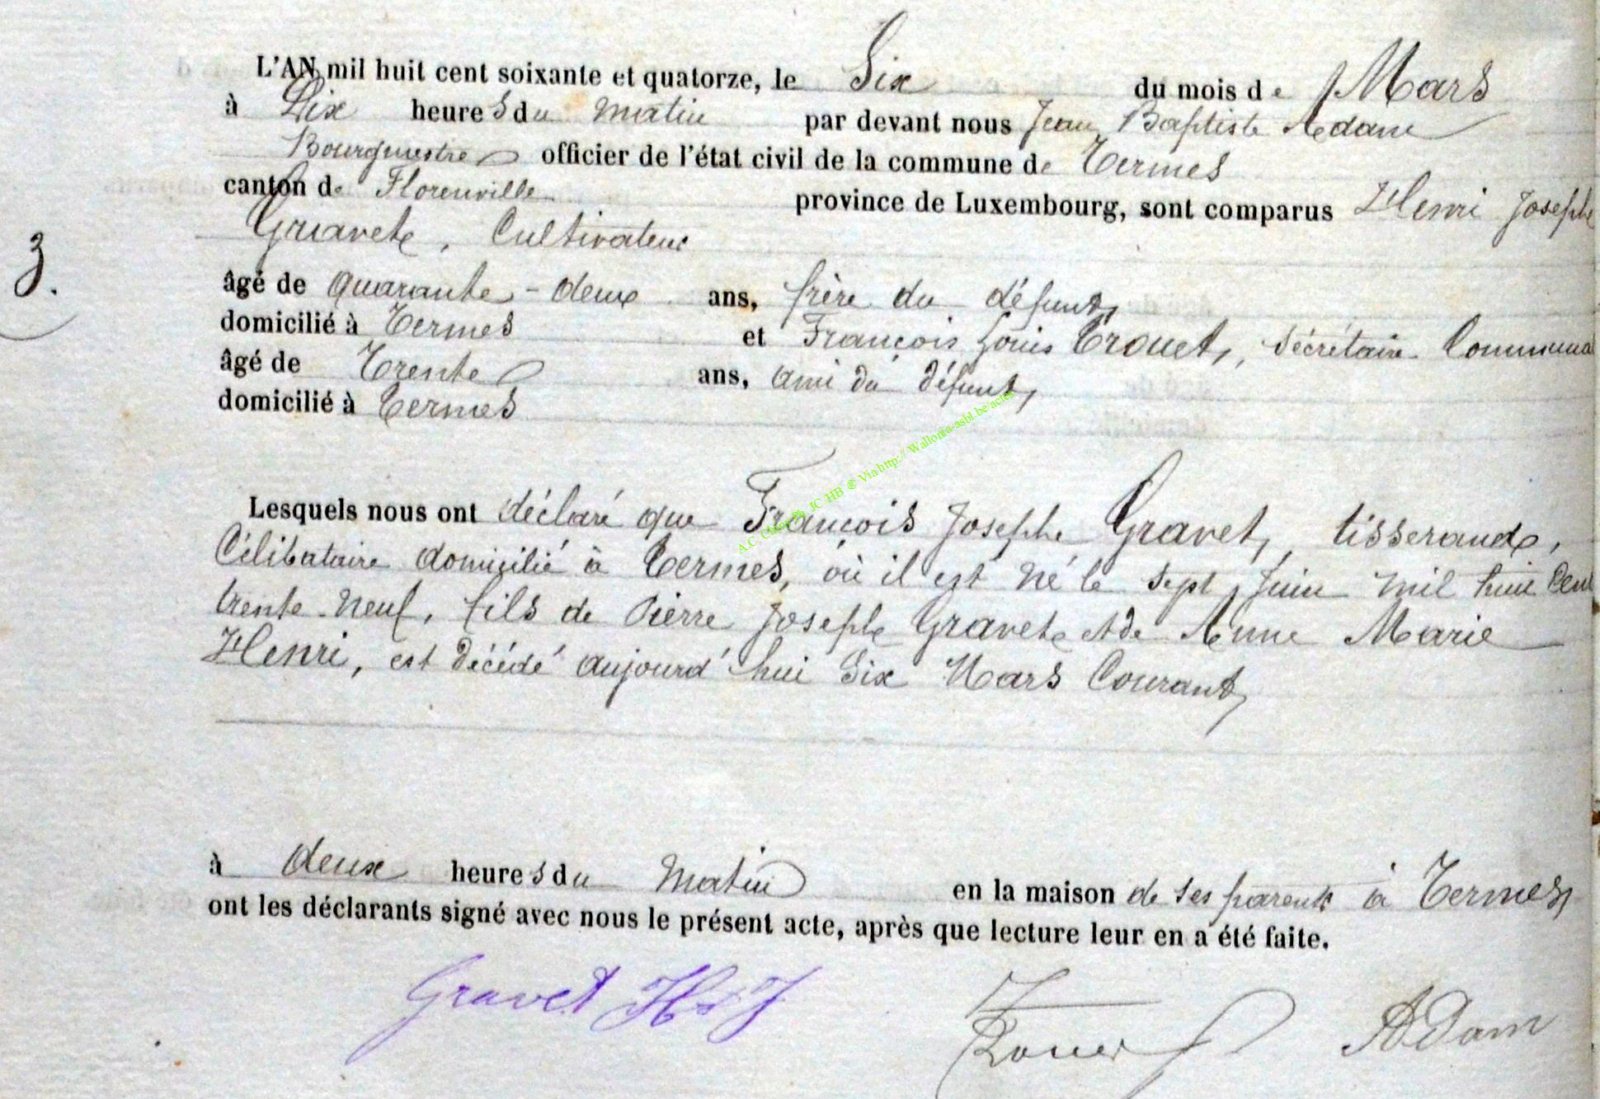 L'AN mil huit cent soixante et quatorze, le Six du mois de Mars
à Dix heures du matin par devant nous Jean Baptiste Adam
Bourgmestre officier de l'état civil de la commune de Termes
canton de Florenville province de Luxembourg, sont comparus Henri Joseph
Gravet, Cultivateur
3.
âgé de quarante-deux ans, frère du défunt,
domicilié à Termes et François Louis Trouet, Sécrétaire Communal
âgé de Trente ans, ami du défunt,
domicilié à Termes
Lesquels nous ont déclaré que François Joseph Gravet, tisserand,
Célibataire domicilié à Termes, où il est né le sept Juin mil huit Cent
trente-neuf, fils de Pierre Joseph Gravet et de Anne Marie
Henri, est décédé aujourd'hui Six Mars Courant,
à deux heures du Matin en la maison de ses parents à Termes,
ont les déclarants signé avec nous le présent acte, après que lecture leur en a été faite.
Gravet H J Trouet ADam